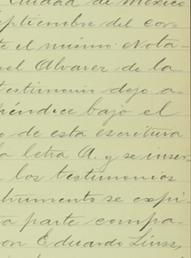 Ciudad de México
eptiembre del cor-
te el mismo Nota-
uel Alvarez de la
testimonio dejo a
péndice bajo el
o de esta escritura
la letra A. y se inser
los testimonios
strumento se expi
a parte compa-
on Eduardo